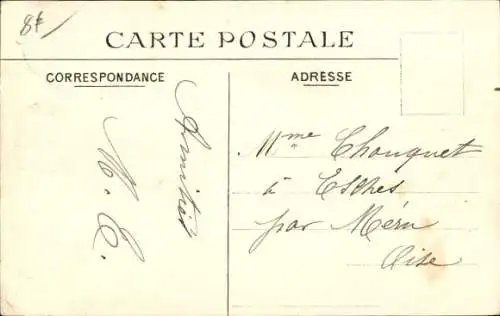 8f
CARTE POSTALE
CORRESPONDANCE
Amitiés
M. C.
ADRESSE
Mme Chouquet
à Esches
par Méru
Oise